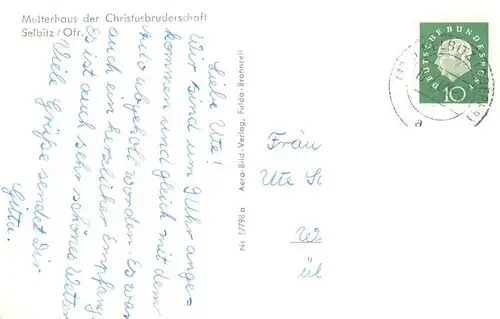 Mutterhaus der Christusbruderschaft
Selbitz / Ofr.
Liebe Ute!
Wir sind um 9 Uhr ange-
kommen und gleich mit dem
Auto abgeholt worden. Es war
auch ein herzlicher Empfang.
Es ist auch sehr schönes Wetter
Viele Grüße sendet Dir
Gitta.
Nr. 57798a Aero-Bild-Verlag, Fulda-Bronnzell
DEUTSCHE BUNDESPOST
10
BITZ
a
Fräu
Ute S
ül